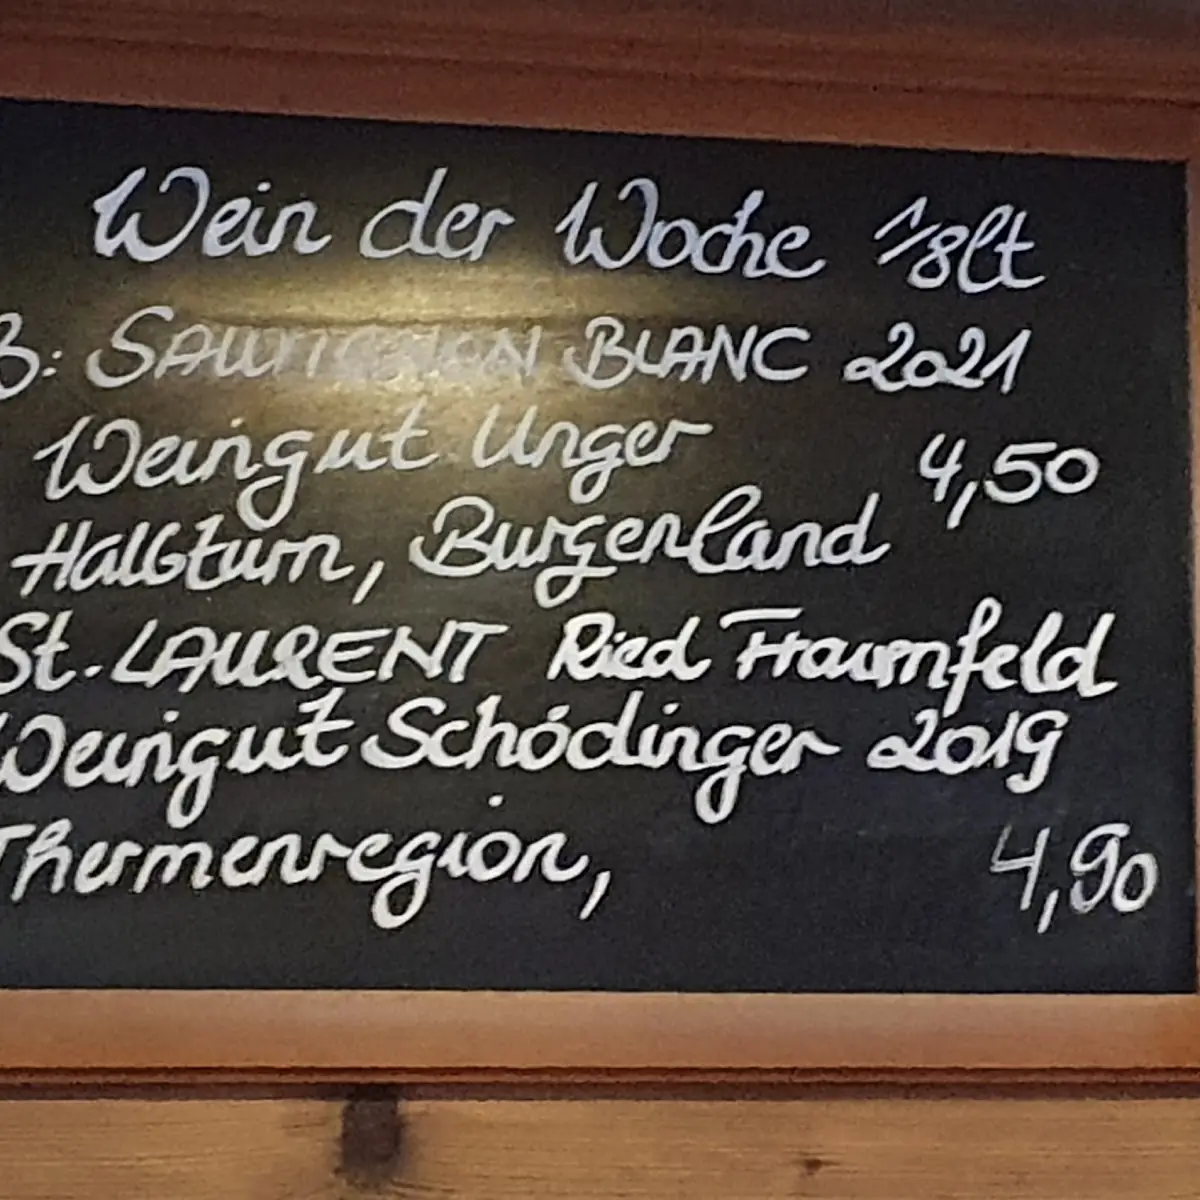 Wein der Woche 1/8lt
B: SAUVIGNON BLANC 2021
Weingut Unger
4,50
Halbturn, Burgenland
St. LAURENT Ried Fraumfeld
Weingut Schödinger 2019
Thermenregion,
4,90